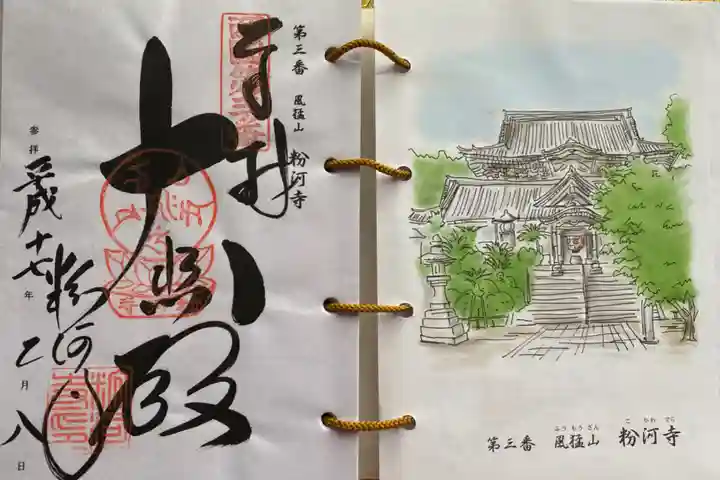 第三番 風猛山 粉河寺
奉拝
大悲殿
粉河寺
参拝 平成十七年 二月 八日
ふうもうざん こかわでら
第三番 風猛山 粉河寺